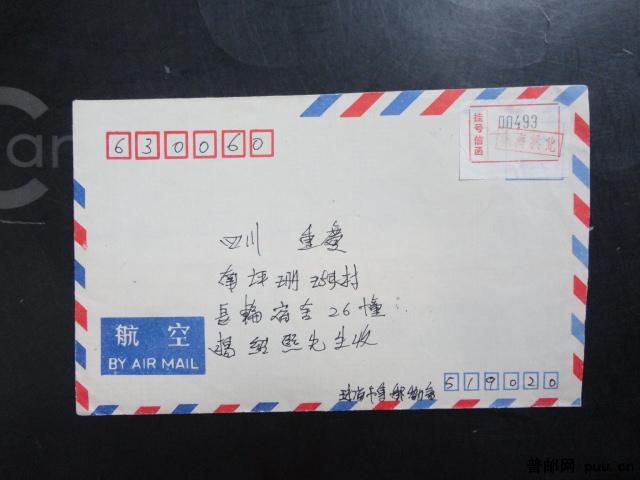 挂号信函
00493
630060
四川 重庆
南坪珊瑚村
长轮宿舍26幢
杨绍熙先生收
航空
BY AIR MAIL
519020
普邮网 puu.cn